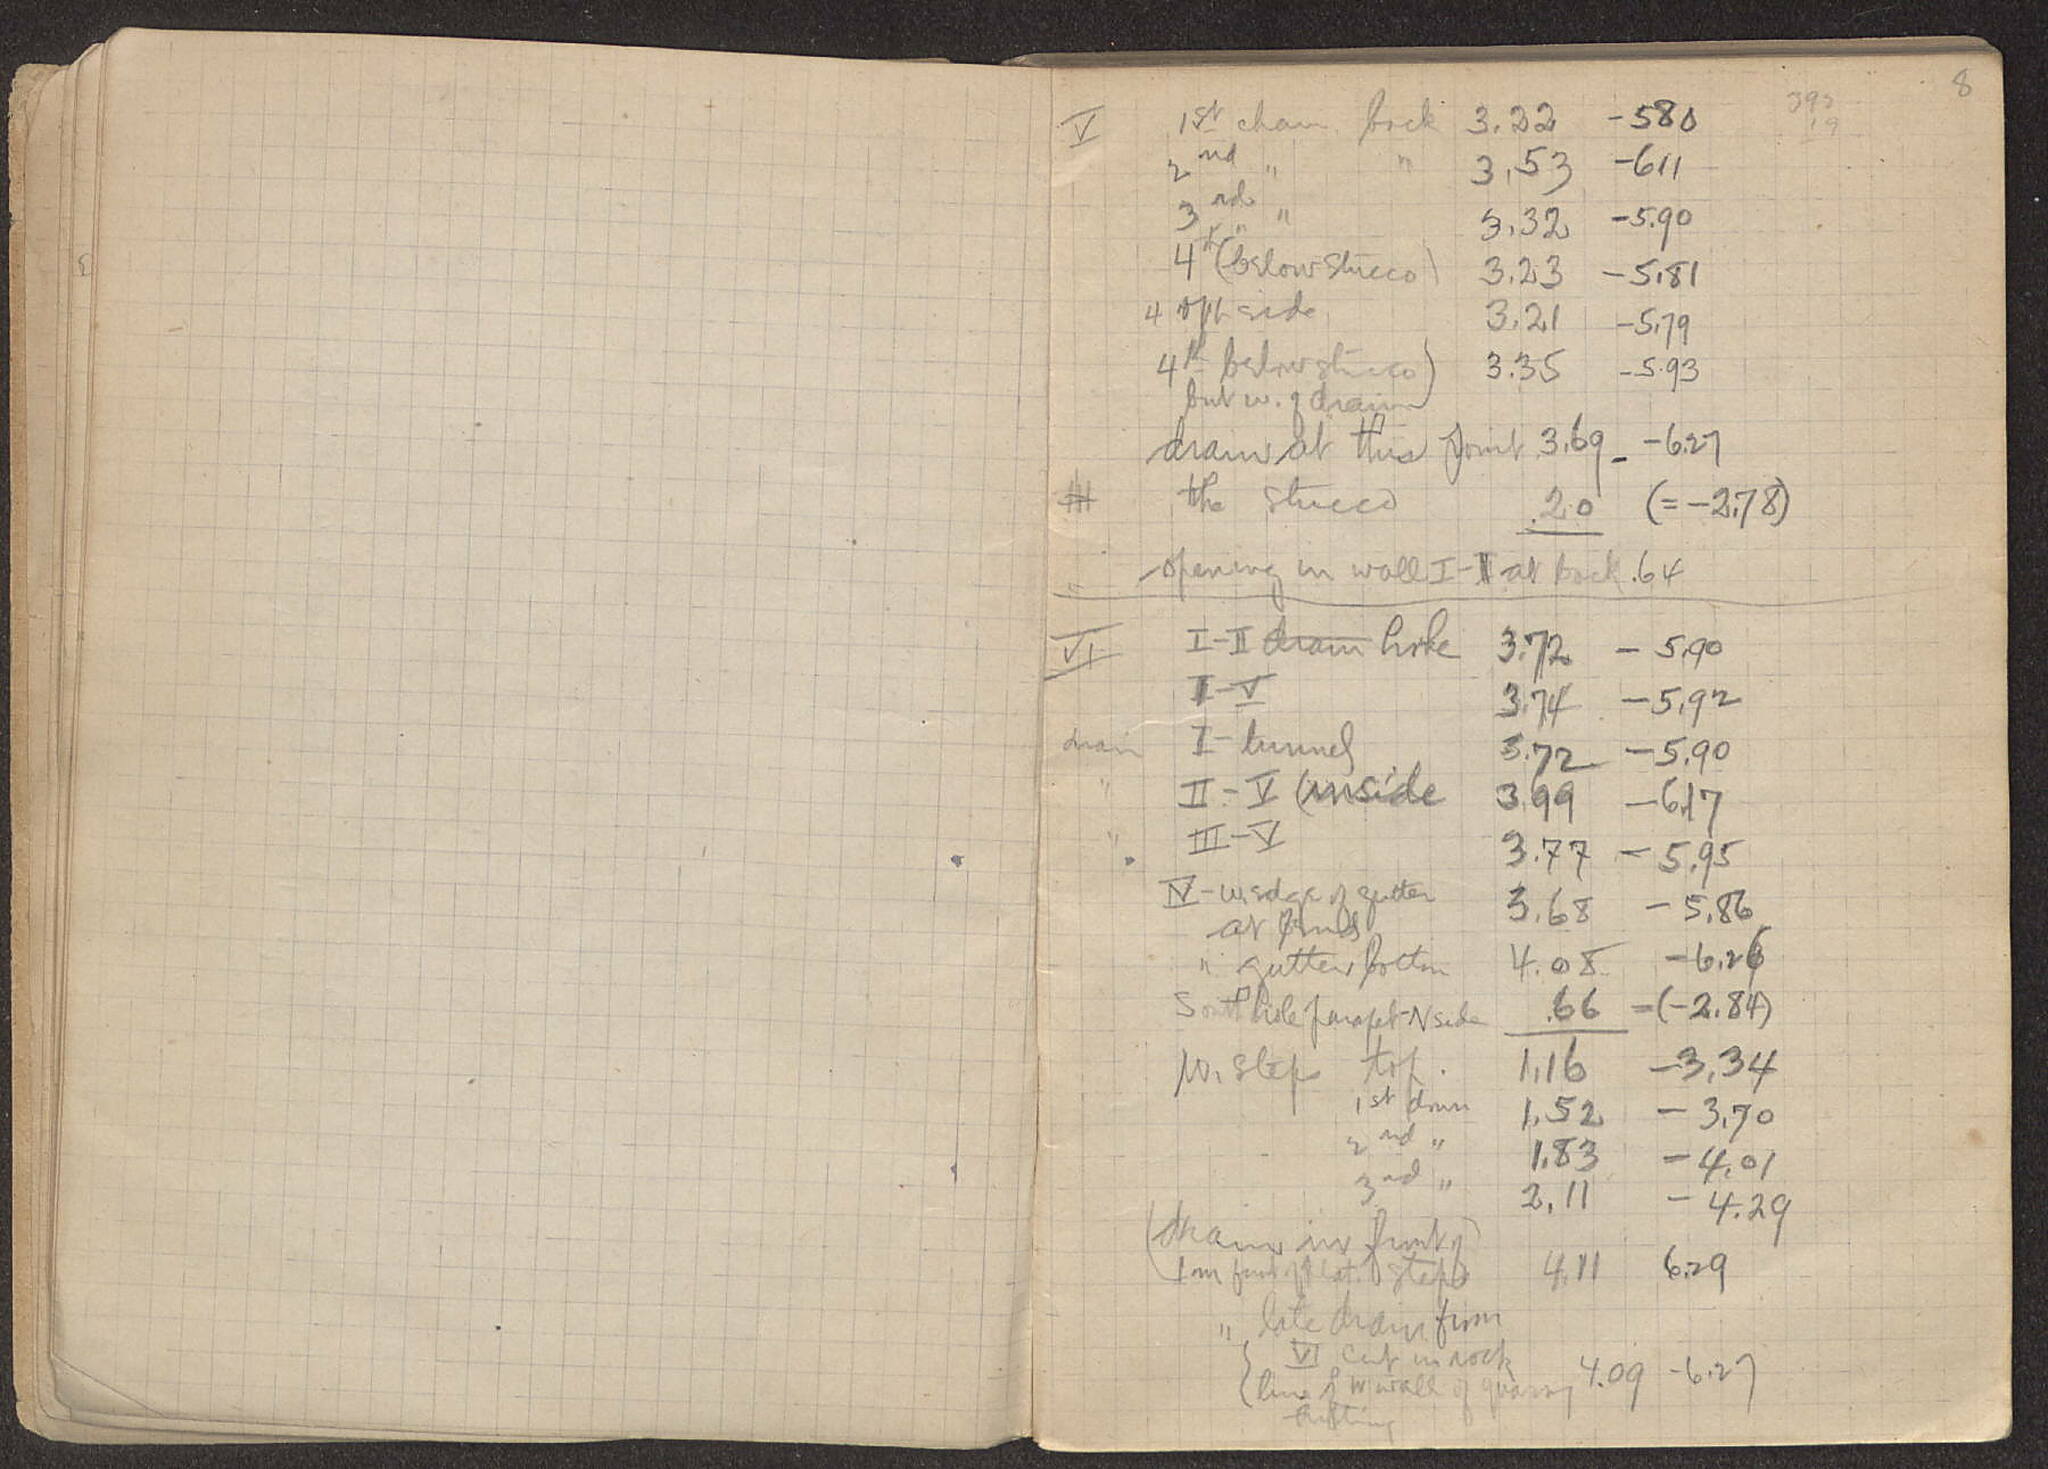 8
V 1st cham back 3.22 -580
2nd " " 3.53 -611
3rd " " 3.32 -5.90
4th (below stucco) 3.23 -5.81
4 opp. side 3.21 -5.79
4th below stucco) 3.35 -5.93
but w. of drain)
drain at this point 3.69 - -6.27
the stucco .20 (=-2.78)
opening in wall I-II at back .64
VI I-II drain hole 3.72 - 5.90
I-V 3.74 -5.92
drain I- tunnel 3.72 -5.90
" II-V (inside 3.99 -6.17
" III-V 3.77 - 5.95
IV- w. edge of gutter 3.68 - 5.86
at
" gutter bottom 4.08 -6.26
South hole parapet-N side .66 =(-2.84)
W. steps top. 1.16 -3.34
1st down 1.52 - 3.70
2nd " 1.83 - 4.01
3rd " 2.11 - 4.29
(drain in front of
1 m steps 4.11 6.29
" late drain from
VI cut in rock 4.09 -6.27
(line of W wall of quarry